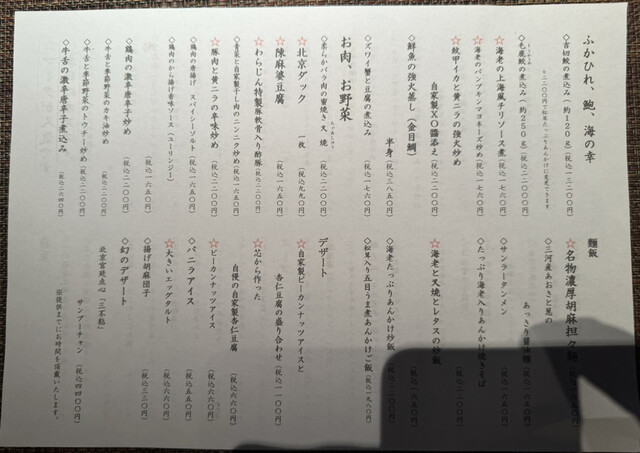 ふかひれ、鮑、海の幸
◇吉切鮫の煮込み（約120g）（税込一三二〇〇円）
◇毛鹿鮫の煮込み（約250g）（税込二二〇〇〇円）
☆海老の上海風チリソース煮（税込一七六〇円）
☆海老のパンプキンマヨネーズ炒め（税込一七六〇円）
☆紋甲イカと黄ニラの強火炒め
自家製XO醬添え（税込二二〇〇円）
◇鮮魚の強火蒸し（金目鯛）
半身（税込三八五〇円）
◇ズワイ蟹と豆腐の煮込み（税込一七六〇円）
お肉、お野菜
◇柔らかバラ肉の蜜焼き叉焼（税込二二〇〇円）
☆北京ダック 一枚（税込九九〇円）
☆陳麻婆豆腐（税込一六五〇円）
☆わらじん特製豚軟骨入り酢豚（税込二二〇〇円）
☆青菜と自家製干し肉のニンニク炒め（税込一六五〇円）
☆豚肉と黄ニラの辛味炒め（税込二二〇〇円）
◇鶏肉の唐揚げ スパイシーソルト（税込一六五〇円）
◇鶏肉のから揚げ香味ソース（ユーリンジー）（税込一六五〇円）
◇鶏肉の激辛唐辛子炒め（税込一六五〇円）
◇牛舌と季節野菜のカキ油炒め（税込二二〇〇円）
◇牛舌と季節野菜のトウチー炒め（税込二二〇〇円）
◇牛舌の激辛唐辛子煮込み（税込二六四〇円）
麺飯
☆名物濃厚胡麻担々麺
◇三河産あおさと葱の
あっさり醤油麺
◇サンラータンメン
◇たっぷり海老入りあんかけ焼きそば
☆海老と叉焼とレタスの炒飯
◇海老たっぷりあんかけ炒飯（税込二二〇〇円）
◇松茸入り五目うま煮あんかけご飯（税込一九八〇円）
デザート
☆自家製ピーカンナッツアイスと
杏仁豆腐の盛り合わせ（税込一一〇〇円）
☆芯から作った
自慢の自家製杏仁豆腐（税込六六〇円）
☆ピーカンナッツアイス（税込六六〇円）
◇バニラアイス（税込五五〇円）
☆大きいエッグタルト（税込六六〇円）
◇揚げ胡麻団子（税込三三〇円）
◇幻のデザート
北京宮廷点心「三不粘」
サンプーチャン（税込四四〇〇円）
※提供までにお時間を頂戴いたします。